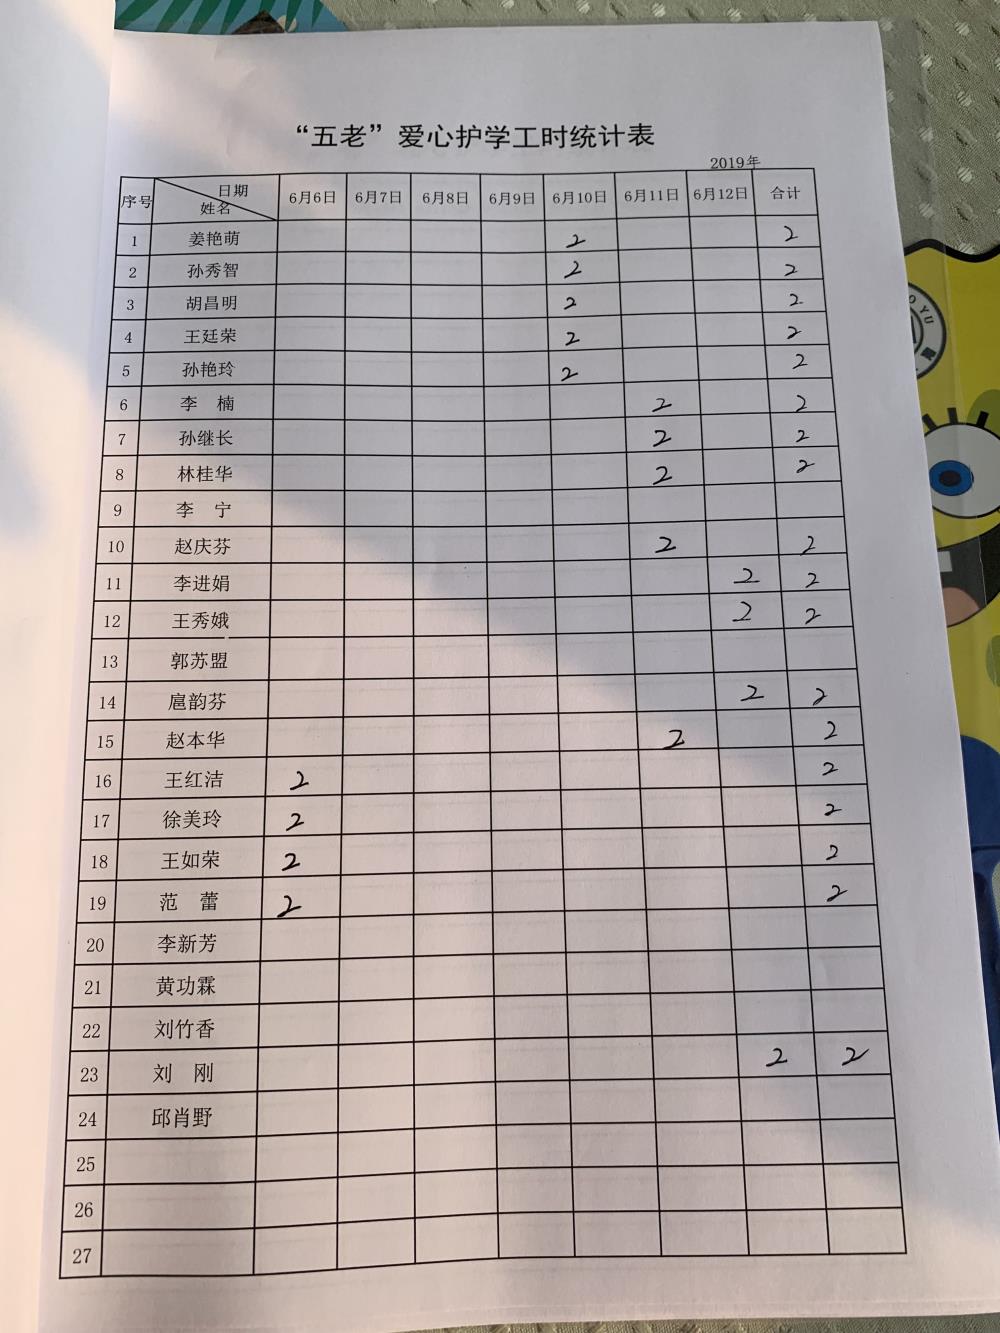 “五老”爱心护学工时统计表
2019年
序号 日期 姓名 6月6日 6月7日 6月8日 6月9日 6月10日 6月11日 6月12日 合计
1 姜艳萌 2 2
2 孙秀智 2 2
3 胡昌明 2 2
4 王廷荣 2 2
5 孙艳玲 2 2
6 李 楠 2 2
7 孙继长 2 2
8 林桂华 2 2
9 李 宁
10 赵庆芬 2 2
11 李进娟 2 2
12 王秀娥 2 2
13 郭苏盟
14 扈韵芬 2 2
15 赵本华 2 2
16 王红洁 2 2
17 徐美玲 2 2
18 王如荣 2 2
19 范 蕾 2 2
20 李新芳
21 黄功霖
22 刘竹香
23 刘 刚 2 2
24 邱肖野
25
26
27